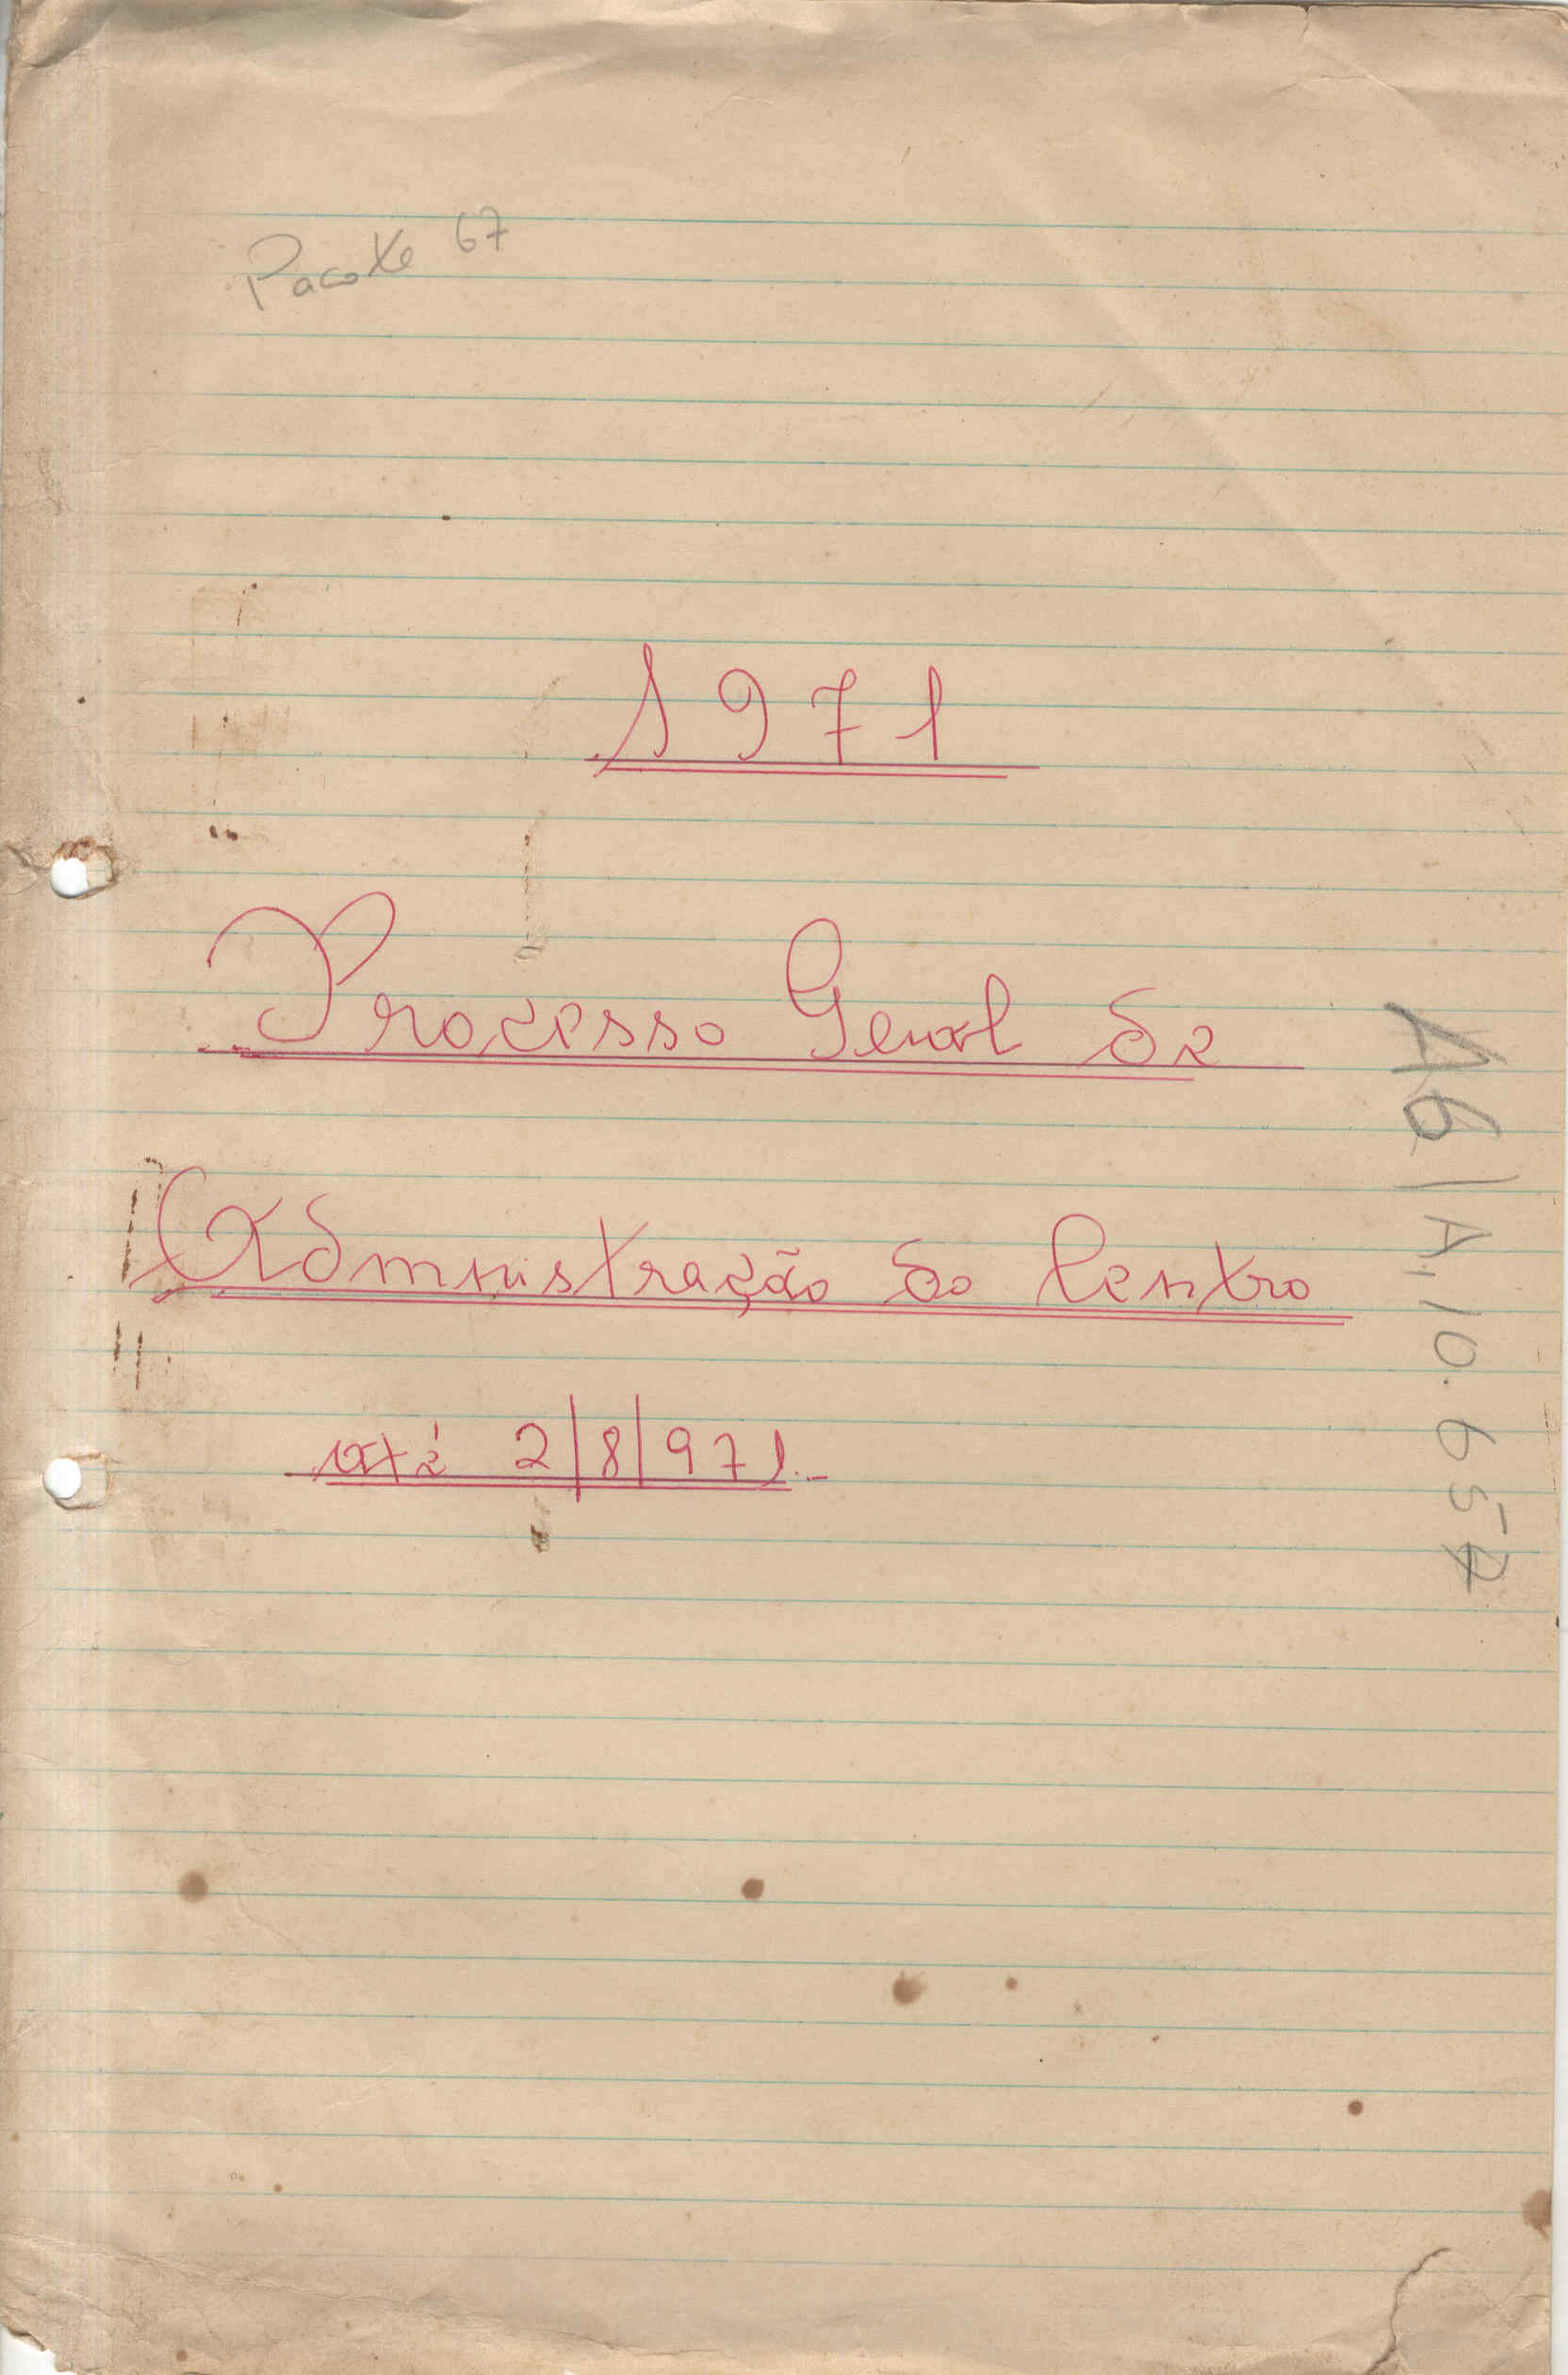 Pacote 67
1971
Processo Geral de
Administração do Centro
até 2/8/971.-
A6/A.10.657